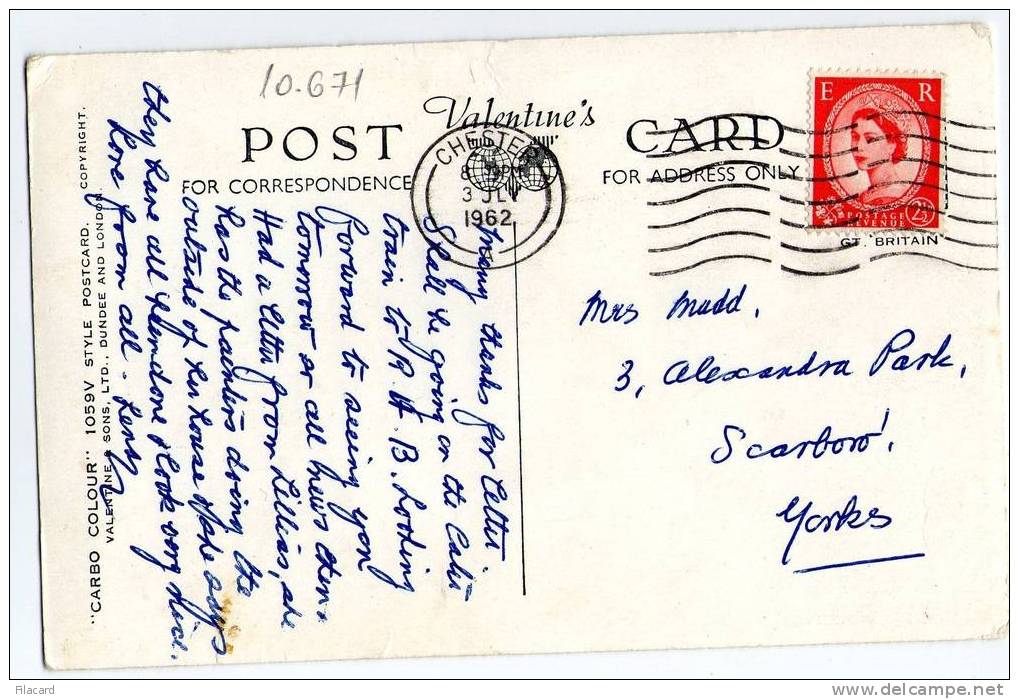 10.671
Valentine's
POST CARD
FOR CORRESPONDENCE
FOR ADDRESS ONLY
CHESTER
8
3 JLY
1962
E R
POSTAGE
REVENUE
2½
GT. BRITAIN
Many thanks for letter.
Shall be going on the
train to
B. Looking
forward to seeing you
tomorrow or all news then.
Had a letter from Lillias, she
has the painters doing the
outside of her house & she says
they have all & look very nice.
Love from all.
Mrs Mudd,
3, Alexandra Park,
Scarboro'.
Yorks
"CARBO COLOUR" 1059V STYLE POSTCARD. COPYRIGHT.
VALENTINE & SONS, LTD., DUNDEE AND LONDON.
Filacard
delcampe.net